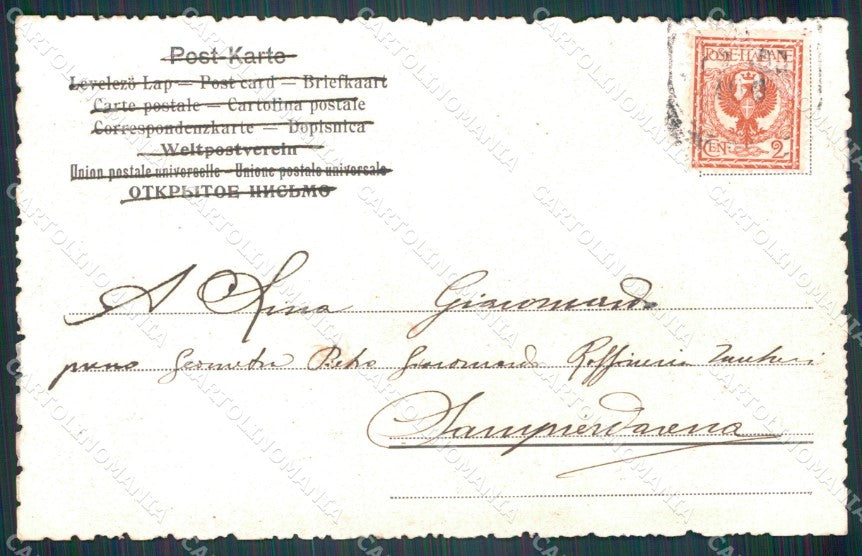 Post-Karte
Levelező Lap — Post card — Briefkaart
Carte postale — Cartolina postale
Correspondenzkarte — Dopisnica
Weltpostverein
Union postale universelle - Unione postale universale
ОТКРЫТОЕ ПИСЬМО
POSTE ITALIANE
CEN. 2
A Rina Giacomardo
Geometra Giacomardo Raffineria
Sampierdarena
CARTOLINOMANIA